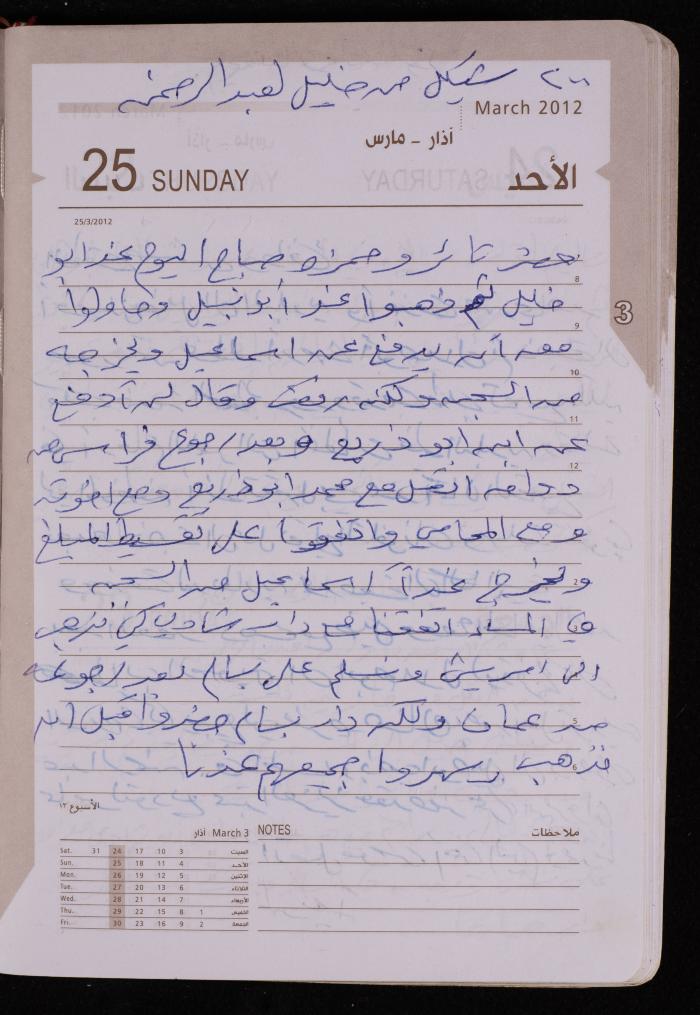 ٢٠٠ شيكل من خليل لعبد الرحمن
March 2012
آذار - مارس
25 SUNDAY
الأحد
25/3/2012
حضر ثائر وحمزه صباح اليوم عند ابو
خليل ثم ذهبوا عند أبو نبيل وحاولوا
معه أن يدفع عن اسماعيل ويخرجه
من السجن ولكنه رفض وقال لن أدفع
عن ابنه ابو ذريع وبعد رجوع فراس من
دوامه اتصل مع محمد ابو ذريع ومع اخوته
ومع المحامي واتفقوا على تقسيط المبلغ
ويخرج غداً اسماعيل من السجن
في المساء اتفقنا مع دار شادي كي نذهب
الى امريش ونسلم على بسام بعد رجوعه
من عمان ولكن دار بسام حضروا قبل أن
نذهب وسهروا جميعهم عندنا
8
9
10
11
12
2
5
6
3
الأسبوع ١٣
آذار March 3
Sat. 31 24 17 10 3 السبت
Sun. 25 18 11 4 الأحد
Mon. 26 19 12 5 الإثنين
Tue. 27 20 13 6 الثلاثاء
Wed. 28 21 14 7 الأربعاء
Thu. 29 22 15 8 1 الخميس
Fri. 30 23 16 9 2 الجمعة
NOTES
ملاحظات